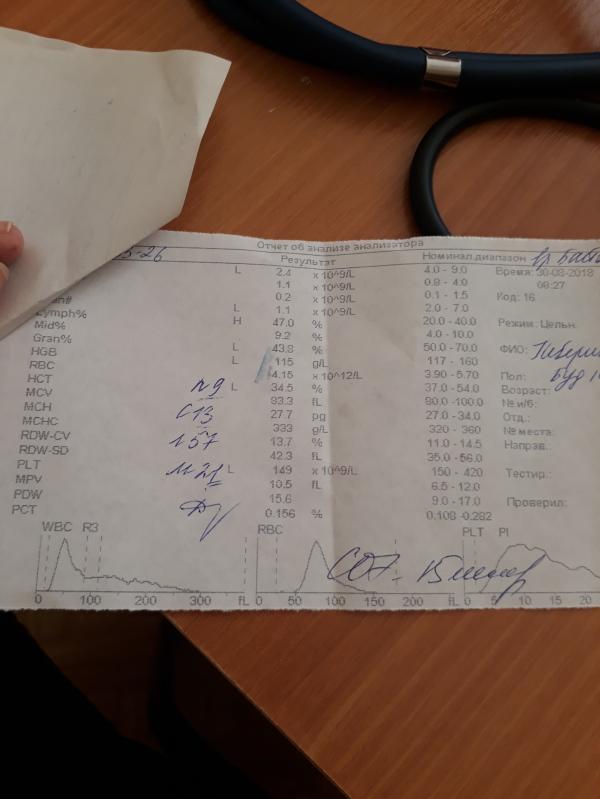 Отчет об анализе анализатора
5-26 Результат Номинал.диапазон
L 2.4 x 10^9/L 4.0 - 9.0 Время: 30-08-2018
1.1 x 10^9/L 0.8 - 4.0 08:27
0.2 x 10^9/L 0.1 - 1.5 Код: 16
an# L 1.1 x 10^9/L 2.0 - 7.0
Lymph% H 47.0 % 20.0 - 40.0 Режим: Цельн.
Mid% 9.2 % 4.0 - 10.0
Gran% L 43.8 % 50.0 - 70.0 ФИО:
HGB L 115 g/L 117 - 160
RBC 4.15 x 10^12/L 3.90 - 5.70 Пол:
HCT L 34.5 % 37.0 - 54.0 Возраст:
MCV п9 83.3 fL 80.0 - 100.0 № и/б:
MCH с13 27.7 pg 27.0 - 34.0 Отд.:
MCHC 333 g/L 320 - 360 № места:
RDW-CV л57 13.7 % 11.0 - 14.5 Направ.:
RDW-SD 42.3 fL 35.0 - 56.0
PLT м21 L 149 x 10^9/L 150 - 420 Тестир.:
MPV 10.5 fL 6.5 - 12.0
PDW 15.6 9.0 - 17.0 Проверил:
PCT 0.156 % 0.108 - 0.282
WBC R3 RBC PLT Pl
СОЭ -
0 100 200 300 fL 0 50 100 150 200 fL 0 5 10 15 20